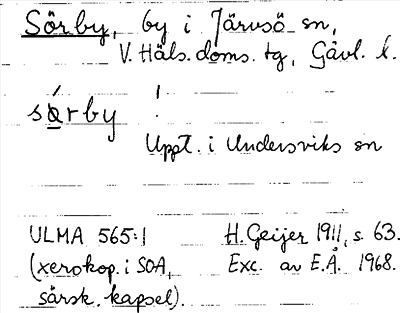 Sörby, by i Järvsö sn,
V. Häls. doms. tg, Gävl. l.
sɑ́rby !
Uppt. i Undersviks sn
ULMA 565:1
(xerokop. i SOA,
särsk. kapsel).
H. Geijer 1911, s. 63.
Exc. av E.Å. 1968.